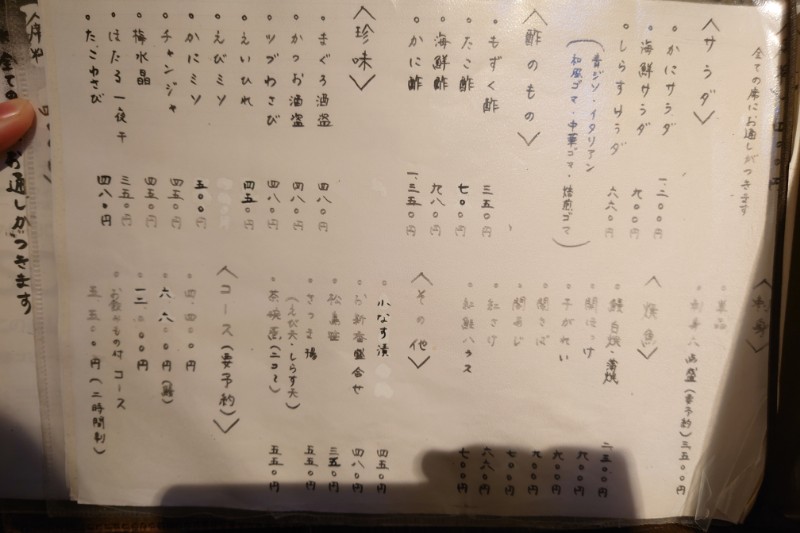 全ての席にお通しがつきます
〈サラダ〉
。かにサラダ 一、二〇〇円
。海鮮サラダ 九〇〇円
。しらすサラダ 六六〇円
(青ジソ・イタリアン
和風ゴマ・中華ゴマ・焙煎ゴマ)
〈酢のもの〉
。もずく酢 三五〇円
。たこ酢 七〇〇円
。海鮮酢 九八〇円
。かに酢 一、三五〇円
〈珍味〉
。まぐろ酒盗 四八〇円
。かつお酒盗 四八〇円
。ツブわさび 四八〇円
。えいひれ 四五〇円
。えびミソ
。かにミソ 五〇〇円
。チャンジャ 四五〇円
。梅水晶 四五〇円
。ほたる一夜干 三五〇円
。たこわさび 四八〇円
。単品
六点盛(要予約)三五〇〇円
〈焼魚〉
。鰻 白焼・蒲焼 二五〇〇円
。開ほっけ 九〇〇円
。子がれい 九〇〇円
。開さば 九〇〇円
。開あじ 七〇〇円
。紅さけ 六六〇円
。紅鮭ハラス 七〇〇円
〈その他〉
。小なす漬 四五〇円
。お新香盛合せ 四八〇円
。松 三五〇円
。さつき揚 五五〇円
(えび天・しらす天)
。茶碗蒸(二コミ) 五五〇円
〈コース(要予約)〉
。四四〇〇円
。六六〇〇円
。一二〇〇〇円
。お飲みもの付コース
五五〇〇円(二時間制)
全てのお通しがつきます